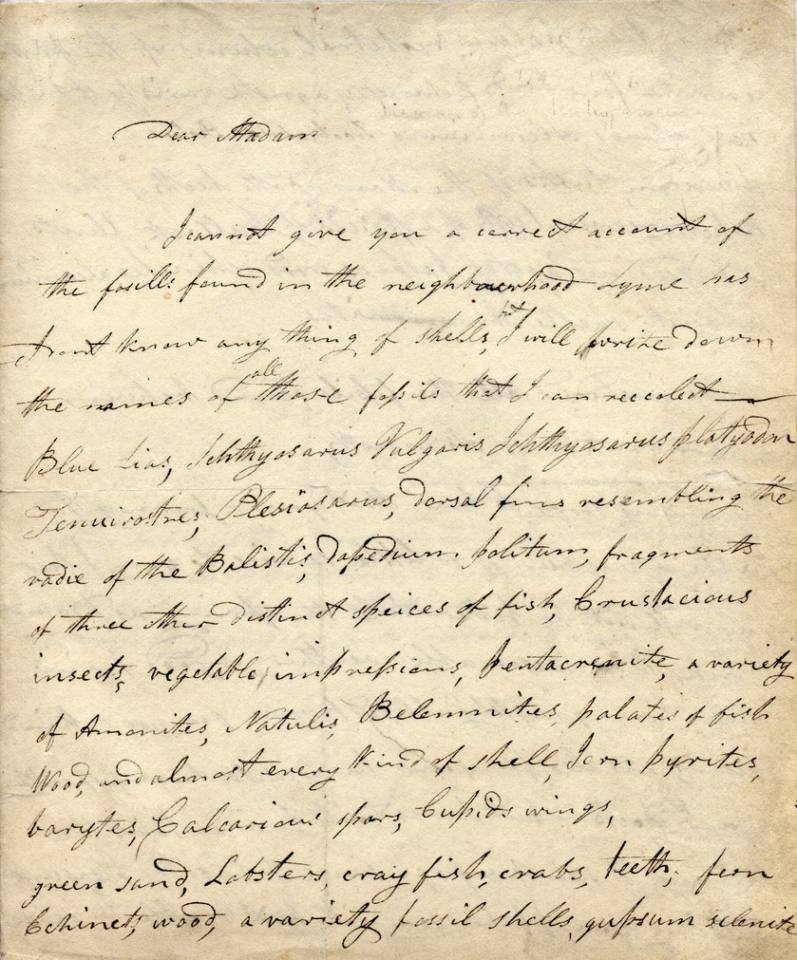 Dear Madam
I cannot give you a correct account of
the fosills found in the neighbourhood Lyme has
I dont know any thing of shells, but I will write down
the names of all those fossils that I can recolect —
Blue Lias, Ichthyosarus Vulgaris Ichthyosarus platyodon
Tenuirostres, Plesiosarus, dorsal fins resembling the
radie of the Balistis, dapedium politum, fragments
of three other distinct speices of fish, Crustacious
insects, vegetable impressions, Pentacrenite, a variety
of Amonites, Natulis, Belemnites, palates of fish
Wood, and almost every kind of shell, Iorn pyrites,
barytes, Calcarious spars, Cupids wings,
green sand, Lobsters, cray fish, crabs, teeth, fern
Echinets, wood, a variety fossil shells, gupsum selenite